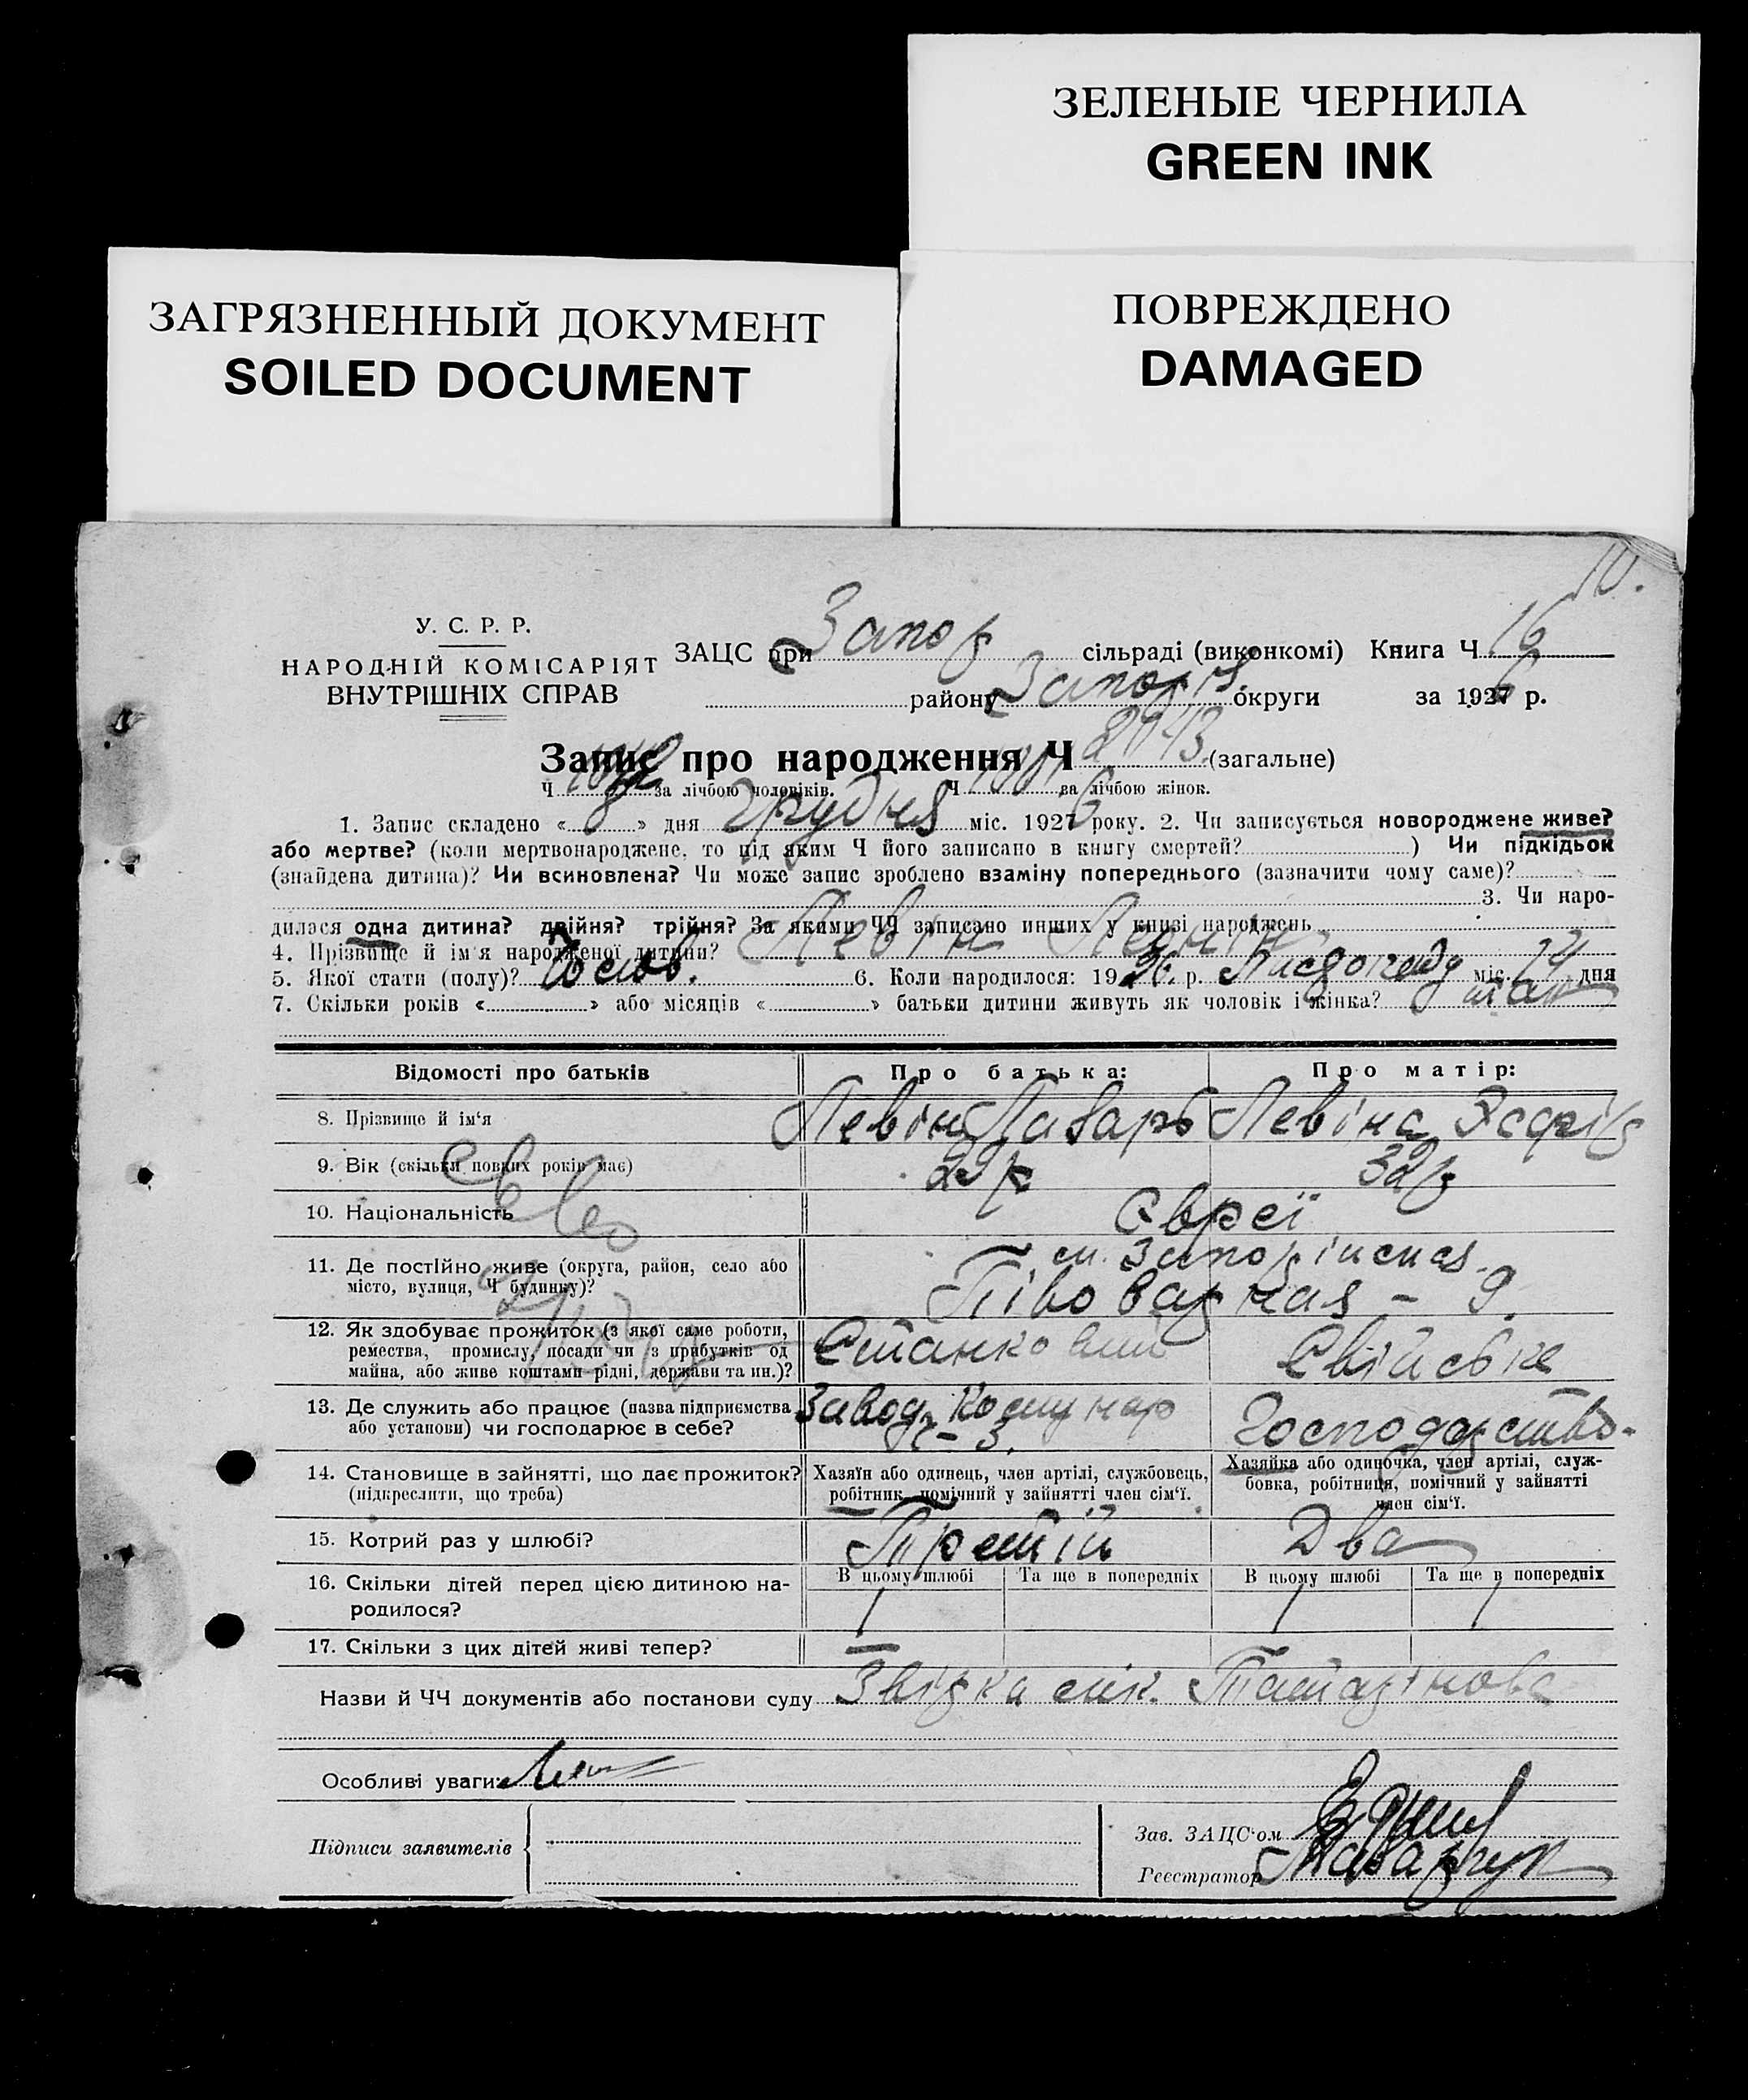 ЗЕЛЕНЫЕ ЧЕРНИЛА
GREEN INK
ЗАГРЯЗНЕННЫЙ ДОКУМЕНТ
SOILED DOCUMENT
ПОВРЕЖДЕНО
DAMAGED
10.
У. С. Р. Р.
НАРОДНІЙ КОМІСАРІЯТ
ВНУТРІШНІХ СПРАВ
ЗАЦС при Запор сільраді (виконкомі) Книга Ч 16
району Запор округи за 1926 р.
Запис про народження Ч (загальне)
Ч за лічбою чоловіків. Ч за лічбою жінок.
1. Запис складено « 8 » дня Грудня міс. 1926 року. 2. Чи записується новороджене живе?
або мертве? (коли мертвонароджене, то під яким Ч його записано в книгу смертей? ) Чи підкідьок
(знайдена дитина)? Чи всиновлена? Чи може запис зроблено взаміну попереднього (зазначити чому саме)?
3. Чи наро-
дилася одна дитина? двійня? трійня? За якими ЧЧ записано инших у книзі народжень
4. Прізвище й ім'я народженої дитини? Левін
5. Якої стати (полу)? Чолов. 6. Коли народилося: 1926 р. Листопаду міс. 24 дня
7. Скільки років « » або місяців « » батьки дитини живуть як чоловік і жінка?
Відомості про батьків
Про батька:
Про матір:
8. Прізвище й ім'я Левін Лазарь Левіна Эсфір
9. Вік (скільки повних років має) 29 р 32 р
10. Національність Євреї
11. Де постійно живе (округа, район, село або
місто, вулиця, Ч будинку)?
м. Запоріжжя
Півоварная - 9.
12. Як здобуває прожиток (з якої саме роботи,
ремества, промислу, посади чи з прибутків од
майна, або живе коштами рідні, держави та ин.)?
Свійське
13. Де служить або працює (назва підприємства
або установи) чи господарює в себе?
Завод Комунар
№ - 3.
Господарство.
14. Становище в зайнятті, що дає прожиток?
(підкреслити, що треба)
Хазяїн або одинець, член артілі, службовець,
робітник, помічний у зайнятті член сім'ї.
Хазяйка або одиночка, член артілі, служ-
бовка, робітниця, помічний у зайнятті
член сім'ї.
15. Котрий раз у шлюбі? Третій Два
16. Скільки дітей перед цією дитиною на-
родилося?
В цьому шлюбі Та ще в попередніх В цьому шлюбі Та ще в попередніх
1 1 1
17. Скільки з цих дітей живі тепер?
Назви й ЧЧ документів або постанови суду Звідка
Особливі уваги:
Підписи заявителів
Зав. ЗАЦС'ом
Реєстратор